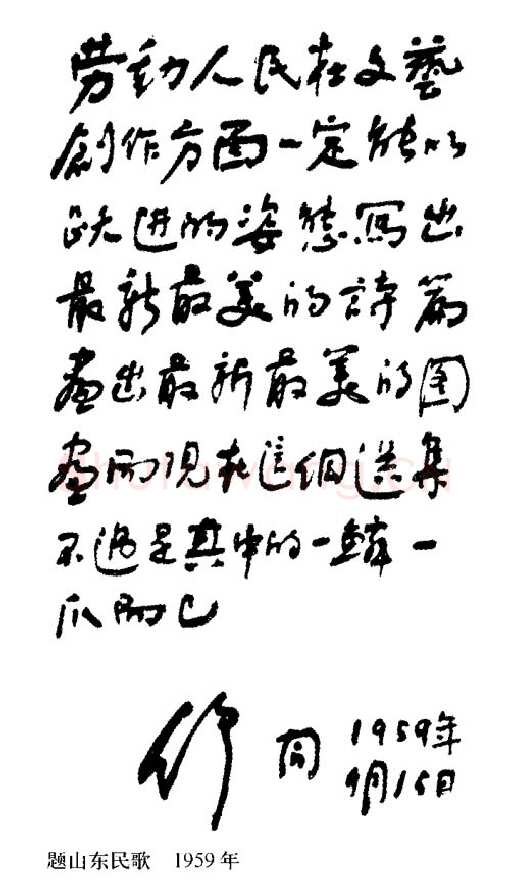 劳動人民在文藝
創作方面一定能以
跃进的姿態写出
最新最美的詩篇
畫出最新最美的图
畫而现在這個选集
不過是其中的一鳞一
爪而已
舒同 1959年
9月15日
题山东民歌 1959年